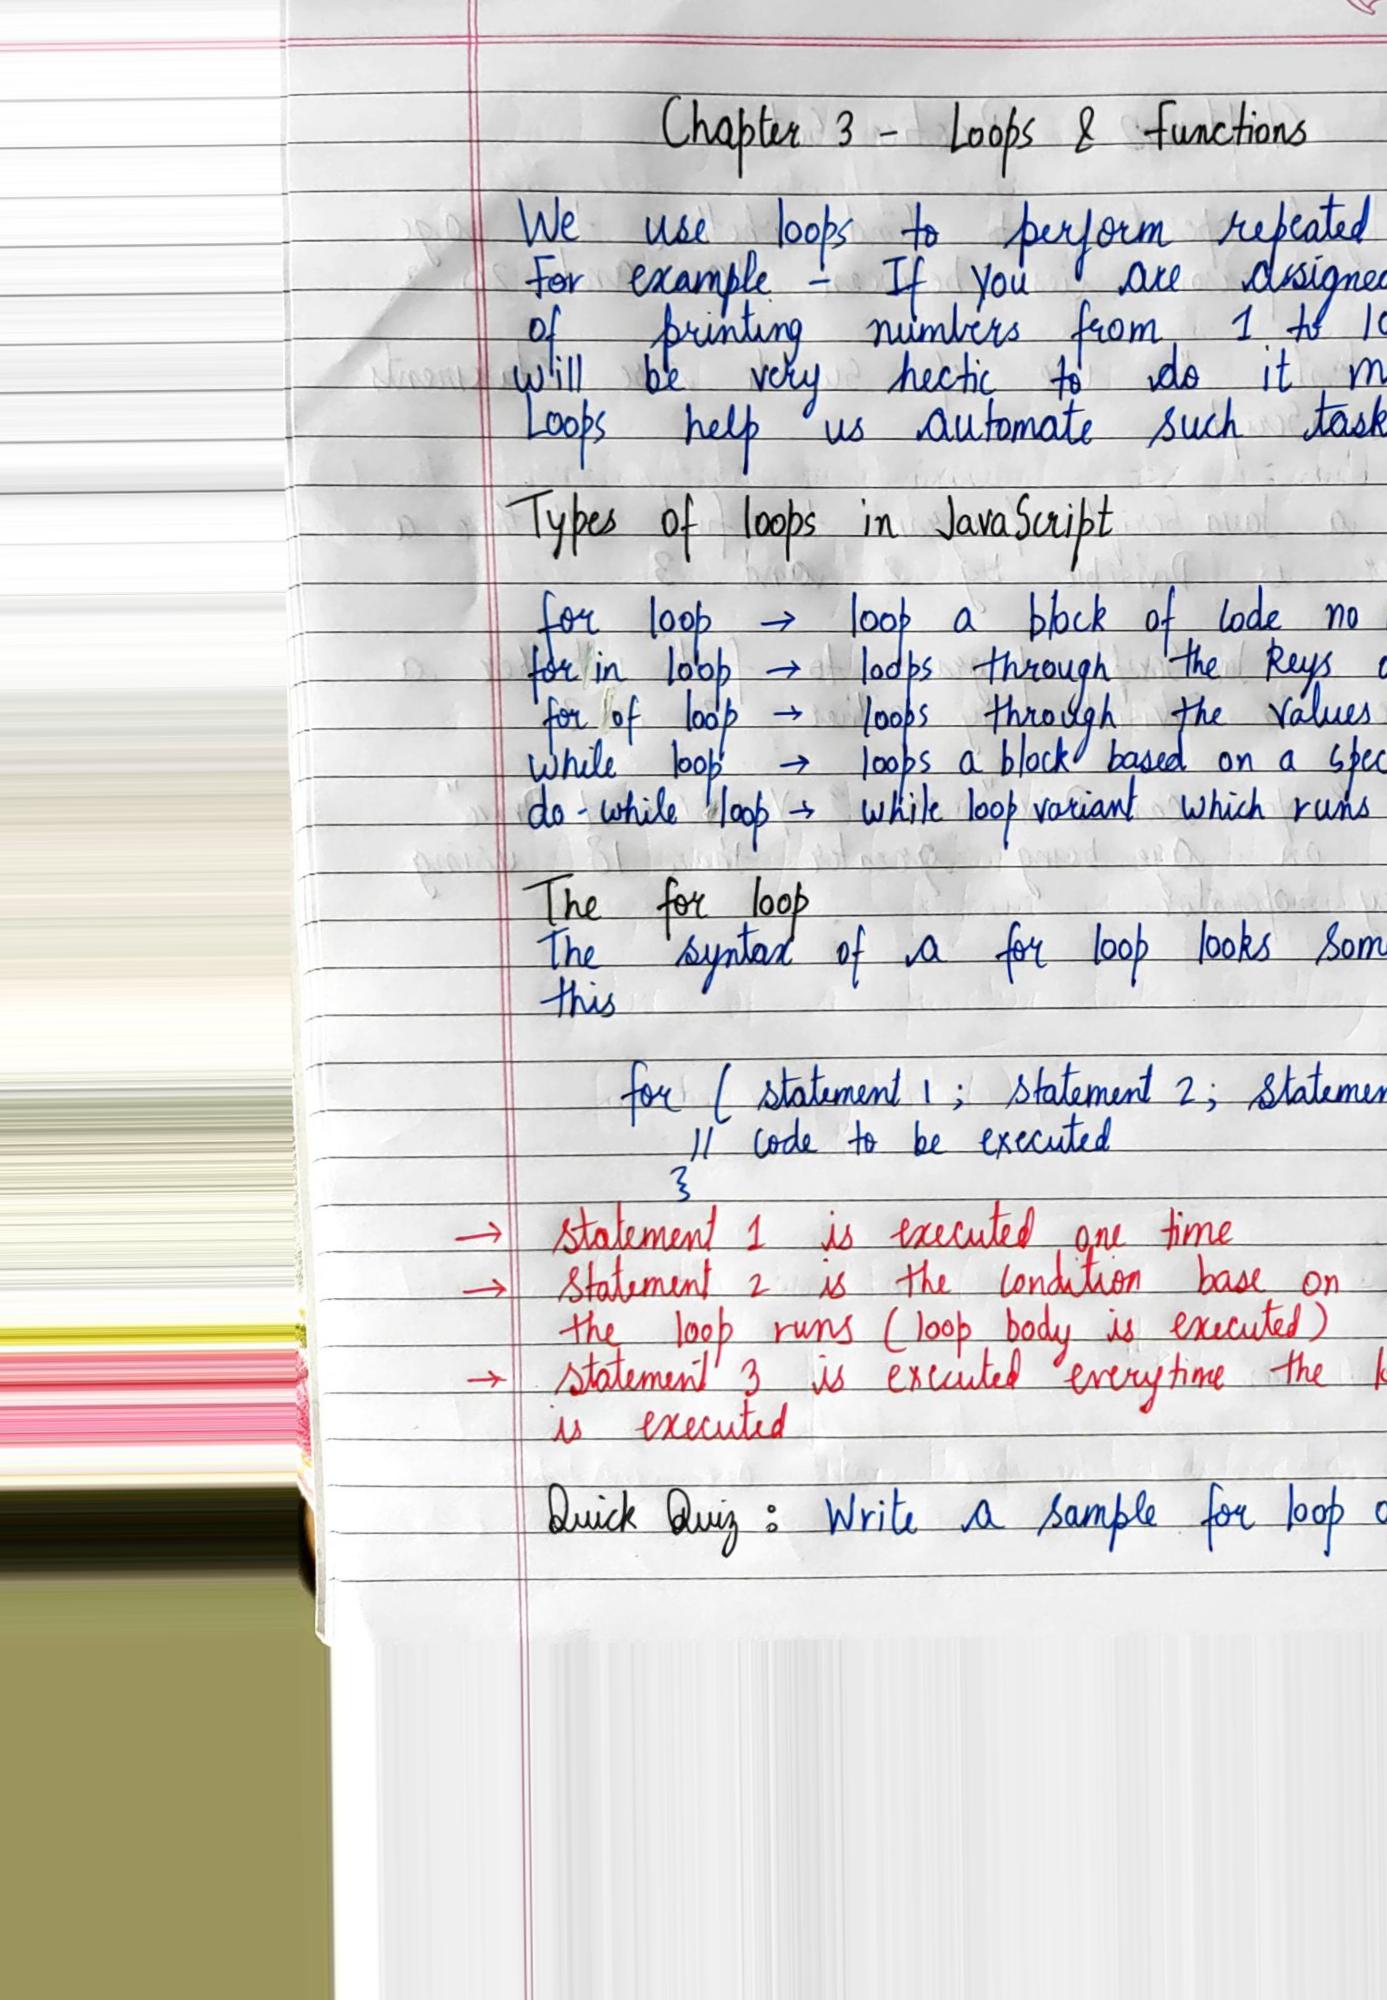 Chapter 3 - Loops & Functions
We use loops to perform repeated
For example - If you are assigned
of printing numbers from 1 to
will be very hectic to do it
Loops help us automate such task
Types of loops in JavaScript
for loop → loop a block of code no
for in loop → loops through the keys
for of loop → loops through the values
while loop → loops a block based on a spec
do-while loop → while loop variant which runs
The for loop
The syntax of a for loop looks som
this
for ( statement 1 ; statement 2 ; statemen
// code to be executed
}
→ statement 1 is executed one time
→ statement 2 is the condition base on
the loop runs (loop body is executed)
→ statement 3 is executed everytime the
is executed
Quick Quiz : Write a sample for loop